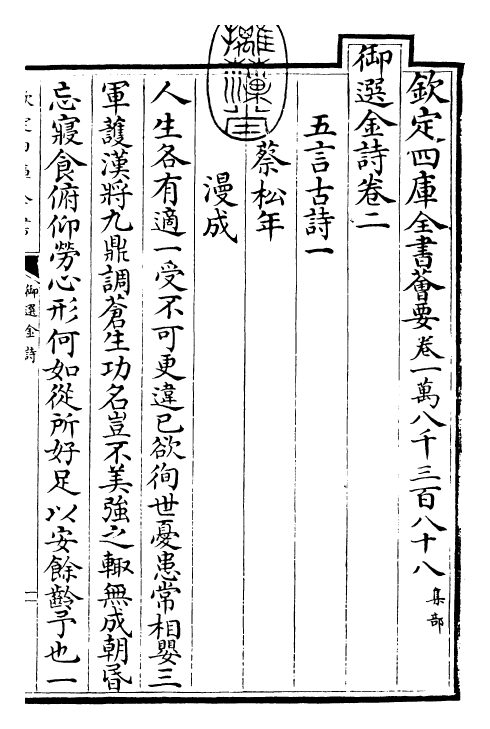 欽定四庫全書薈要卷一萬八千三百八十八 集部
御選金詩卷二
五言古詩一
蔡松年
漫成
人生各有適一受不可更違已欲徇世憂患常相嬰三
軍護漢將九鼎調蒼生功名豈不美強之輙無成朝昏
忘寢食俯仰勞心形何如從所好足以安餘齡予也一
御選金詩
一